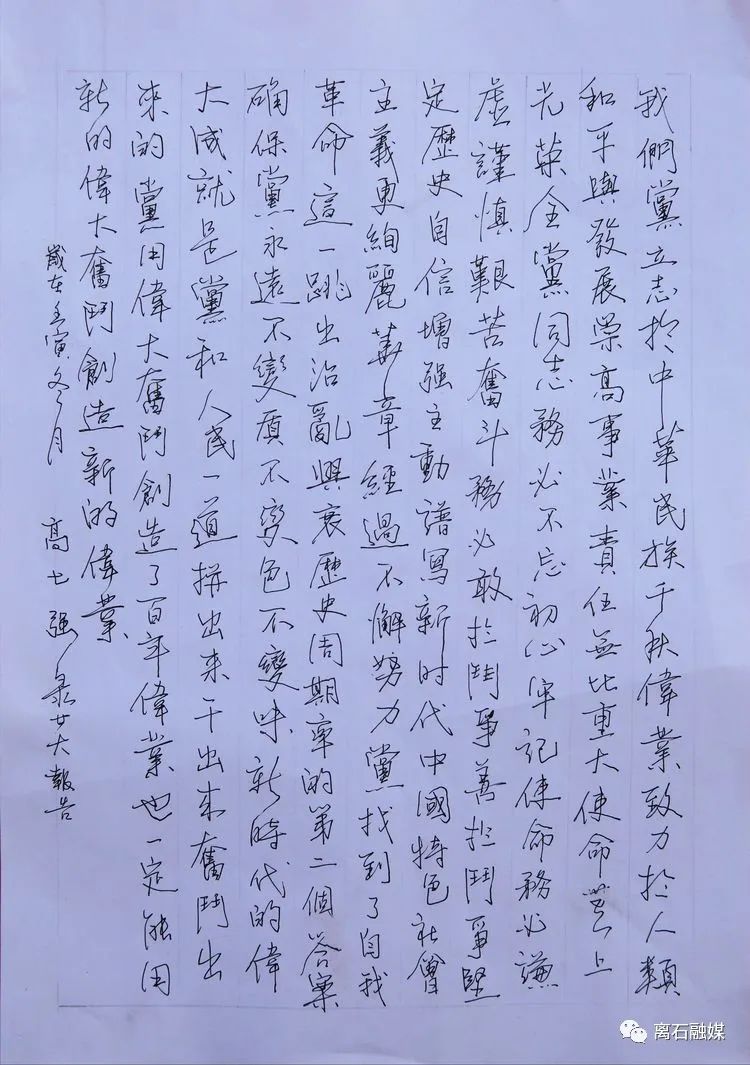 我們黨立志於中華民族千秋偉業致力於人類
和平與發展崇高事業責任無比重大使命無上
光榮全黨同志務必不忘初心牢記使命務必謙
虛謹慎艱苦奮斗務必敢於鬥爭善於鬥爭堅
定歷史自信增强主動譜寫新时代中國特色社會
主義更絢麗華章經過不懈努力黨找到了自我
革命這一跳出治亂興衰歷史周期率的第二個答案
确保黨永遠不變质不变色不變味新時代的偉
大成就是黨和人民一道拼出来干出来奮鬥出
來的黨用偉大奮鬥創造了百年偉業也一定能用
新的偉大奮鬥創造新的偉業
歲在壬寅冬月 高七强錄廿大報告
离石融媒